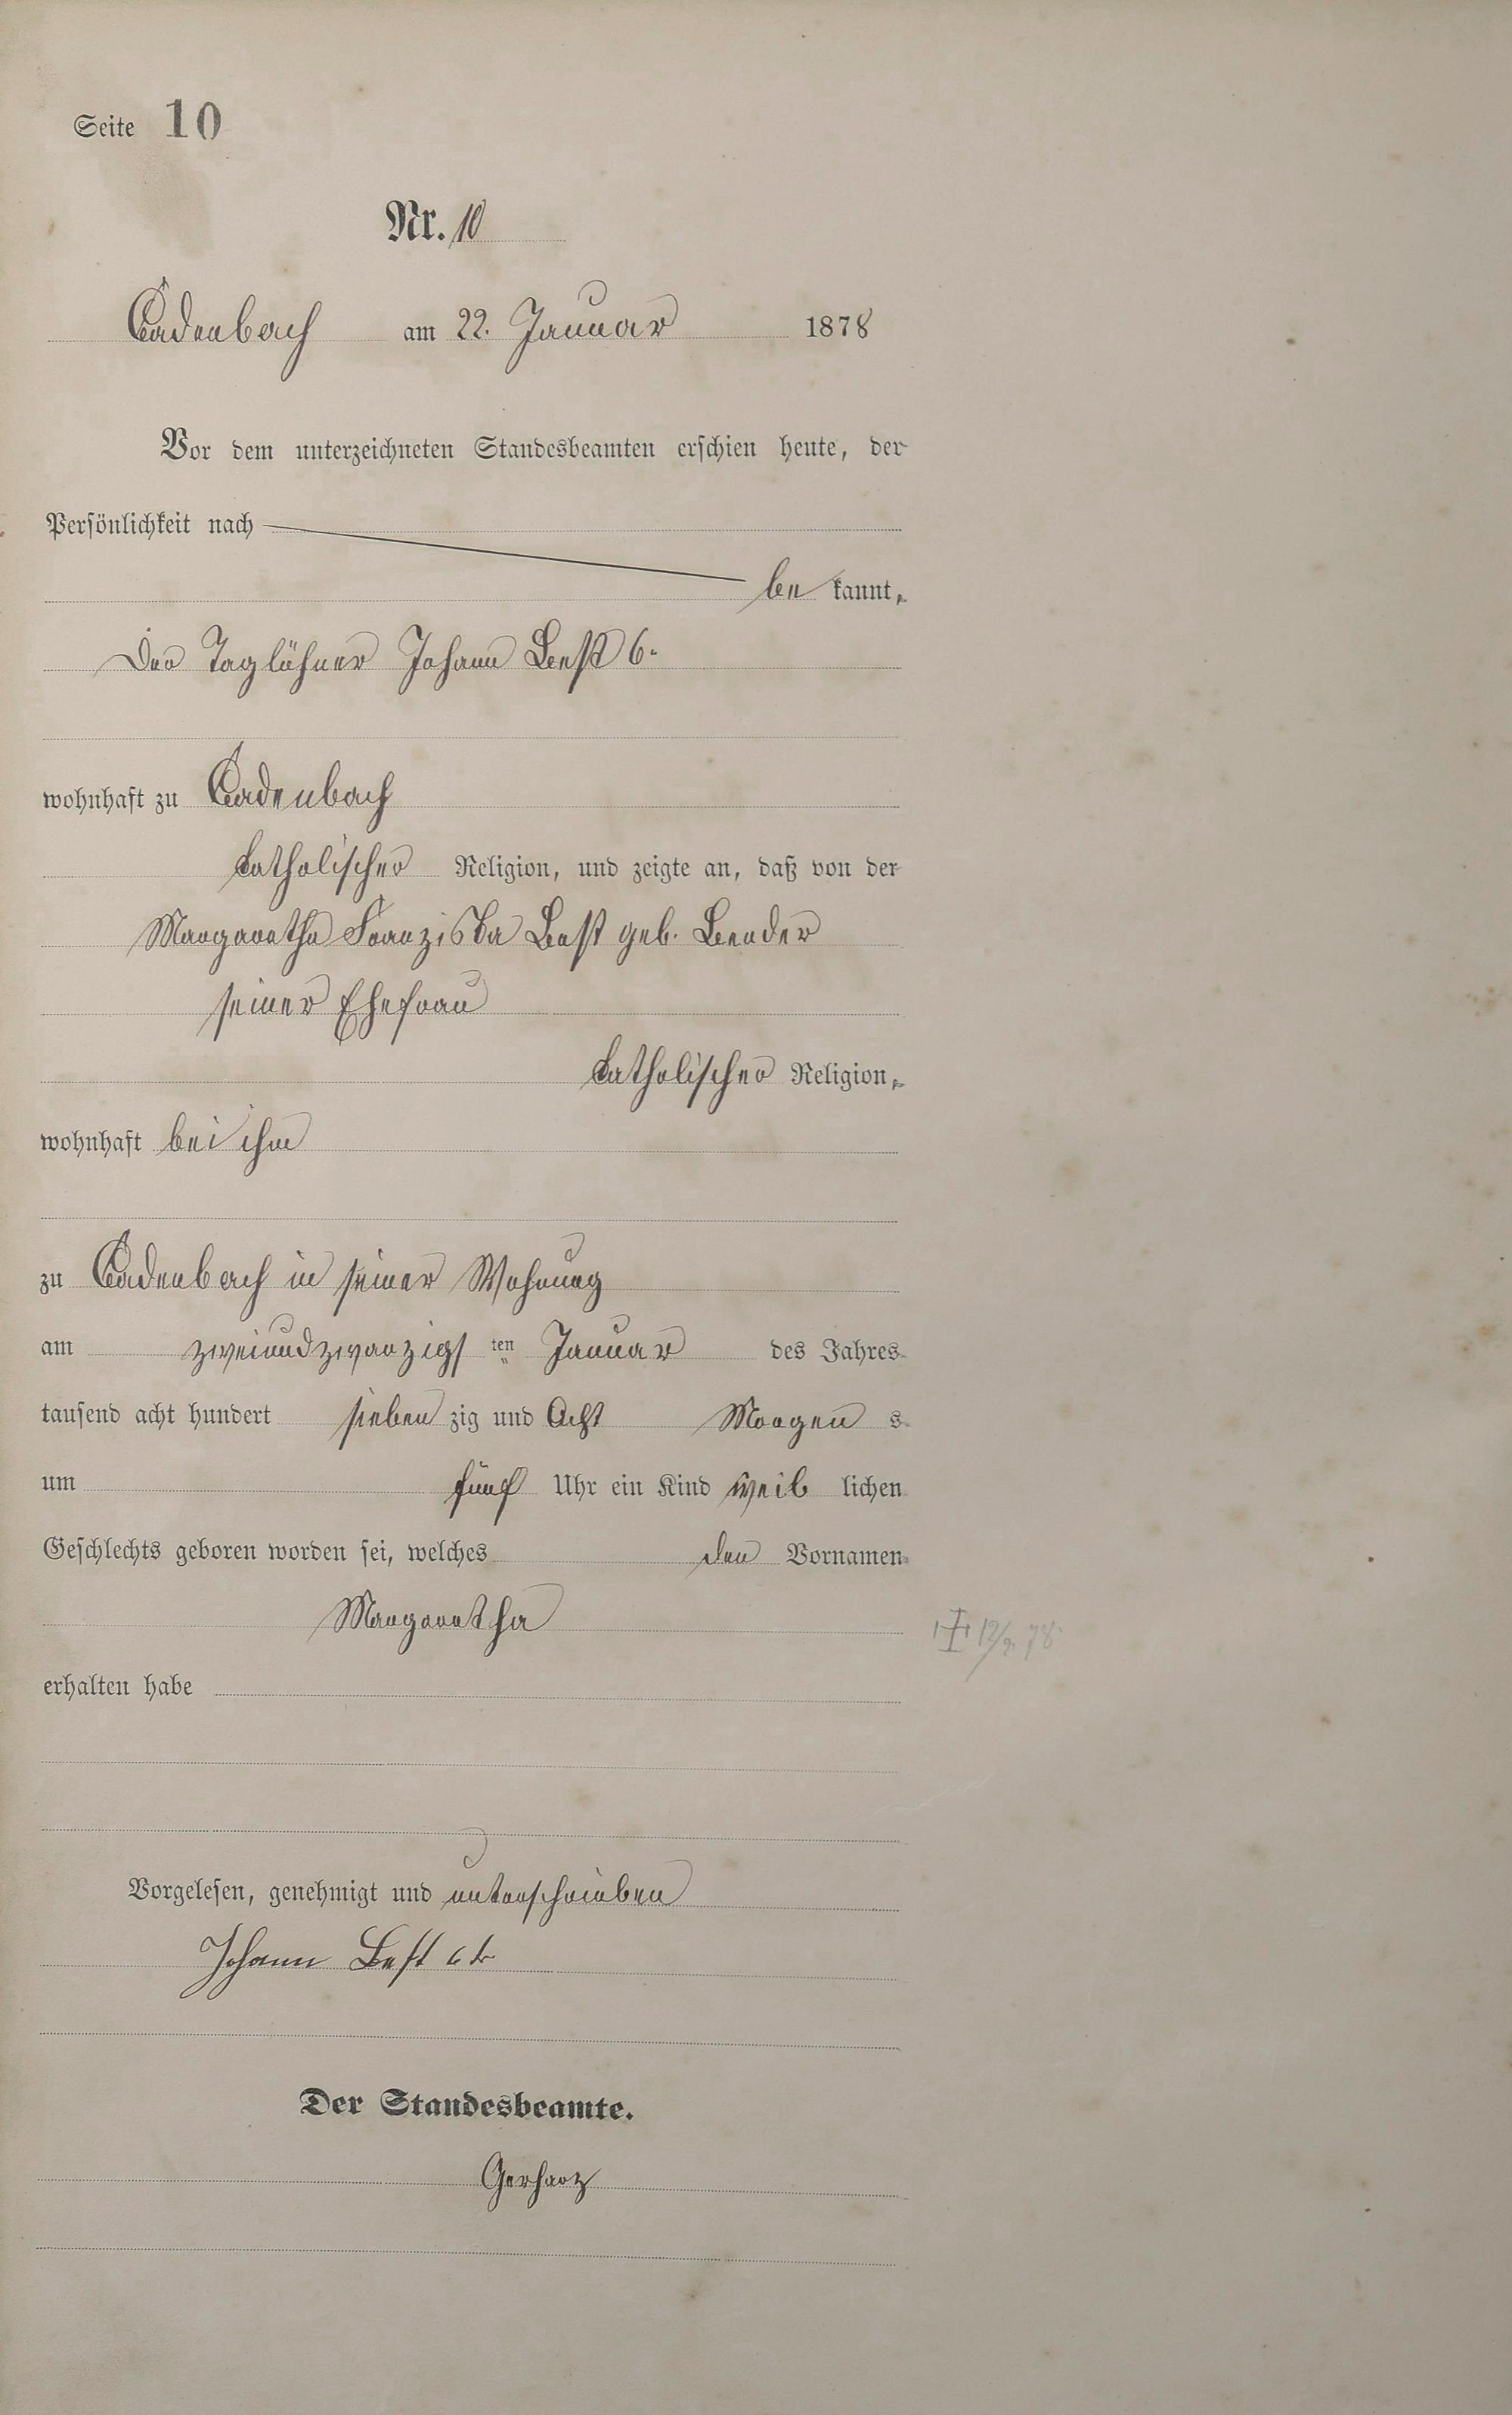 Seite 10
Nr. 10
Cadenbach am 22. Januar 1878
Vor dem unterzeichneten Standesbeamten erschien heute, der
Persönlichkeit nach
be kannt,
Der Taglöhner Johann Best 6.
wohnhaft zu Cadenbach
katholischer Religion, und zeigte an, daß von der
Margaretha Franziska Best geb. Bender
seiner Ehefrau
katholischer Religion,
wohnhaft bei ihm
zu Cadenbach in seiner Wohnung
am zweiundzwanzigs ten Januar des Jahres
tausend acht hundert sieben zig und Acht Morgen s
um fünf Uhr ein Kind weib lichen
Geschlechts geboren worden sei, welches den Vornamen
Margaretha
† 12/9. 78
erhalten habe
Vorgelesen, genehmigt und unterschrieben
Johann Best 6t
Der Standesbeamte.
Gerharz